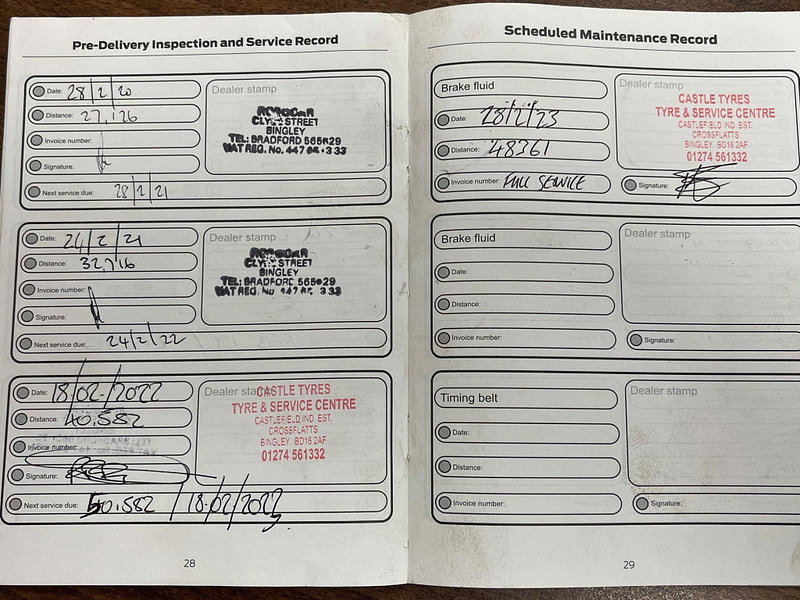 Pre-Delivery Inspection and Service Record
Date: 28/2/20
Distance: 27,126
Invoice number:
Signature:
Next service due: 28/2/21
Dealer stamp
STREET
BINGLEY
TEL: BRADFORD
VAT REG. No.
Date: 24/2/21
Distance: 32,716
Invoice number:
Signature:
Next service due: 24/2/22
Dealer stamp
STREET
BINGLEY
TEL: BRADFORD
VAT REG. No
Date: 18-02-/2022
Distance: 40.582
Invoice number:
Signature:
Next service due: 50.582 / 18-02/2023
Dealer stamp
CASTLE TYRES
TYRE & SERVICE CENTRE
CASTLEFIELD IND. EST.
CROSSFLATTS
BINGLEY BD16 2AF
01274 561332
28
Scheduled Maintenance Record
Brake fluid
Date: 28/2/23
Distance: 48361
Invoice number: FULL SERVICE
Dealer stamp
CASTLE TYRES
TYRE & SERVICE CENTRE
CASTLEFIELD IND. EST.
CROSSFLATTS
BINGLEY BD16 2AF
01274 561332
Signature:
Brake fluid
Date:
Distance:
Invoice number:
Dealer stamp
Signature:
Timing belt
Date:
Distance:
Invoice number:
Dealer stamp
Signature:
29